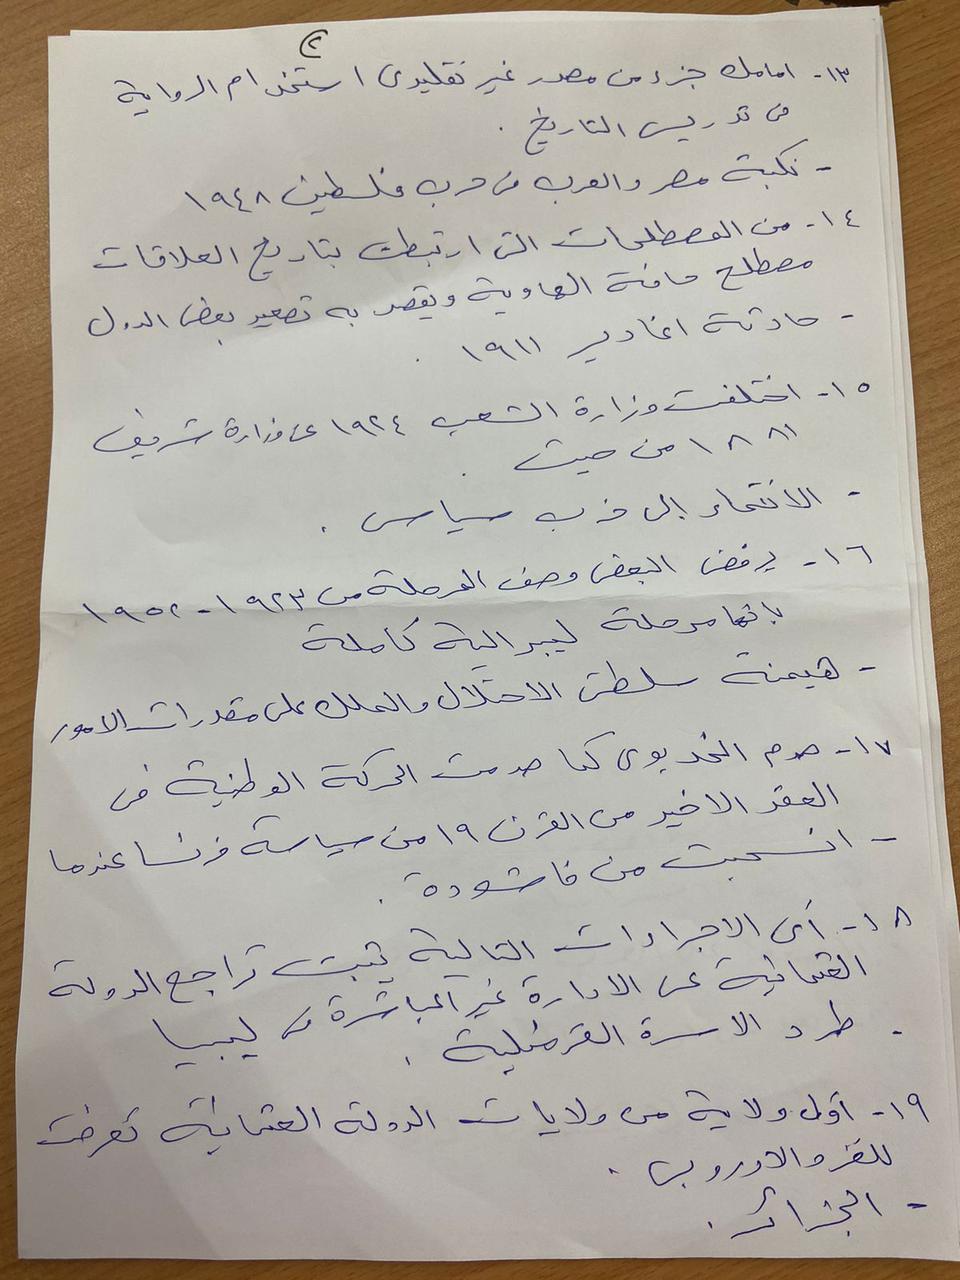 ٢
١٣- امامك جزء من مصدر غير تقليدى استخدام الرواية
فى تدريس التاريخ .
- نكبة مصر والعرب فى حرب فلسطين ١٩٤٨
١٤- من المصطلحات التى ارتبطت بتاريخ العلاقات
مصطلح حافة الهاوية ويقصد به تصعيد بعض الدول
- حادثة اغادير ١٩١١ .
١٥- اختلفت وزارة الشعب ١٩٢٤ عن وزارة شريف
١٨٨١ من حيث .
- الانتماء إلى حزب سياسى .
١٦- يرفض البعض وصف المرحلة من ١٩٢٣-١٩٥٢
بانها مرحلة ليبرالية كاملة
- هيمنة سلطتى الاحتلال والملك على مقدرات الامور
١٧- صدم الخديوى كما صدمت الحركة الوطنية فى
العقد الاخير من القرن ١٩ من سياسة فرنسا عندما
- انسحبت من فاشودة .
١٨- أى الاجراءات التالية يثبت تراجع الدولة
العثمانية عن الادارة غير المباشرة فى ليبيا
- طرد الاسرة القرمنلية .
١٩- أول ولاية من ولايات الدولة العثمانية تعرضت
للغزو الاوروبى .
- الجزائر .